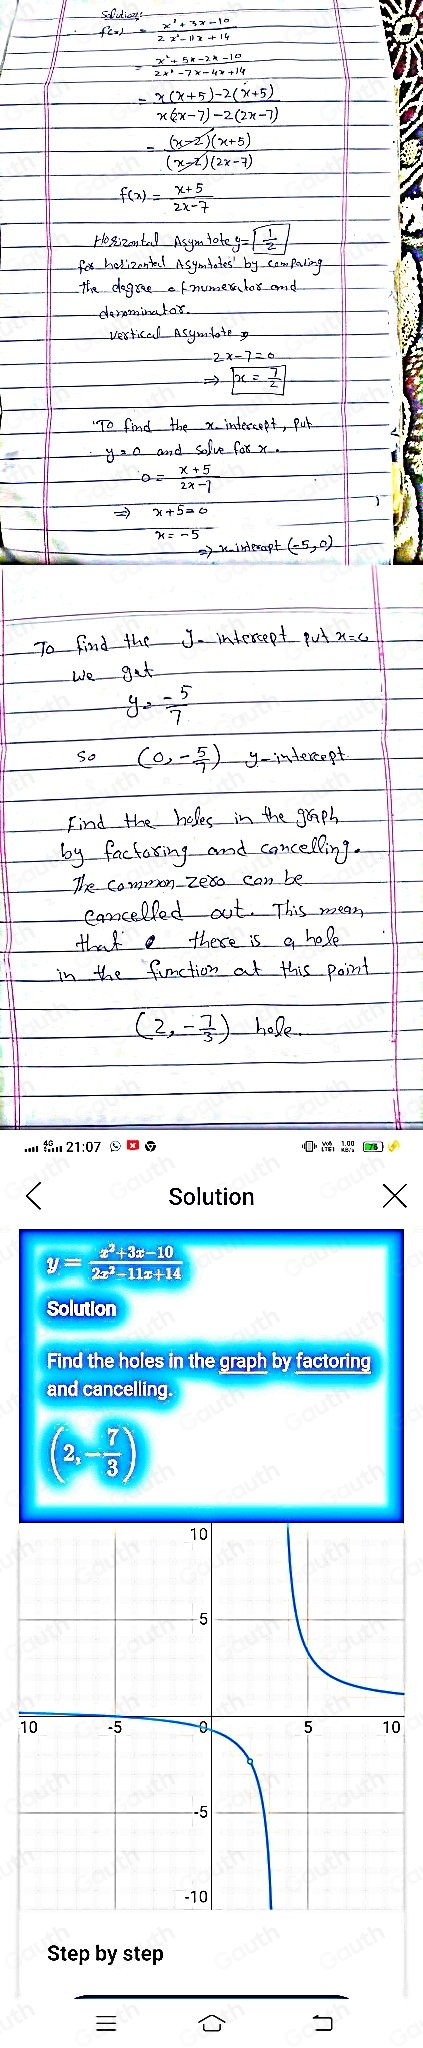 Solution:
f(x) = x²+3x-10 / 2x²-11x+14
= x²+5x-2x-10 / 2x²-7x-4x+14
= x(x+5)-2(x+5) / x(2x-7)-2(2x-7)
= (x-2)(x+5) / (x-2)(2x-7)
f(x) = x+5 / 2x-7
Horizontal Asymtote y= 1/2
for horizontal Asymtotes by comparing
the degree of numerator and
denominator.
vertical Asymtote
2x-7=0
⇒ x = 7/2
To find the x-intercept, put
y=0 and solve for x.
0= x+5 / 2x-7
⇒ x+5=0
x=-5
⇒ x-intercept (-5,0)
To find the y-intercept put x=0
we get
y= -5/7
so (0,-5/7) y-intercept
Find the holes in the graph
by factoring and cancelling.
The common zero can be
cancelled out. This mean
that there is a hole
in the function at this point
(2,-7/3) hole.
4G 21:07 VoLTE1 1.00 KB/s 76
Solution
y = x²+3x-10 / 2x²-11x+14
Solution
Find the holes in the graph by factoring
and cancelling.
(2,-7/3)
10
5
10 -5 0 5 10
-5
-10
Step by step